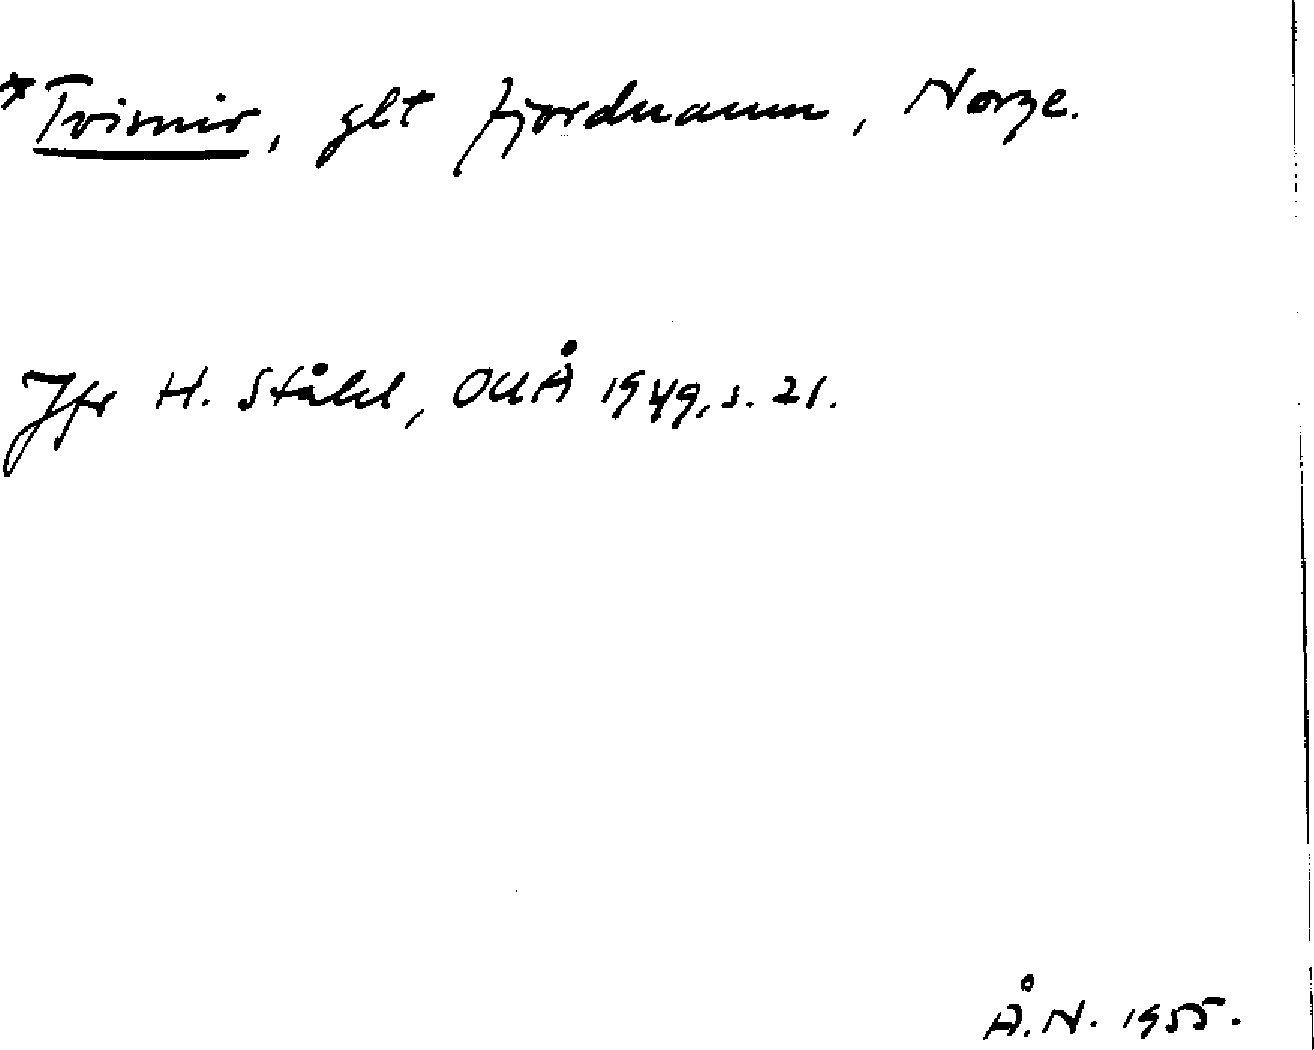 *Tvisnir, glt fjordnamn, Norge.
Jfr H. Ståhl, OUÅ 1949, s. 21.
Å.N. 1955.